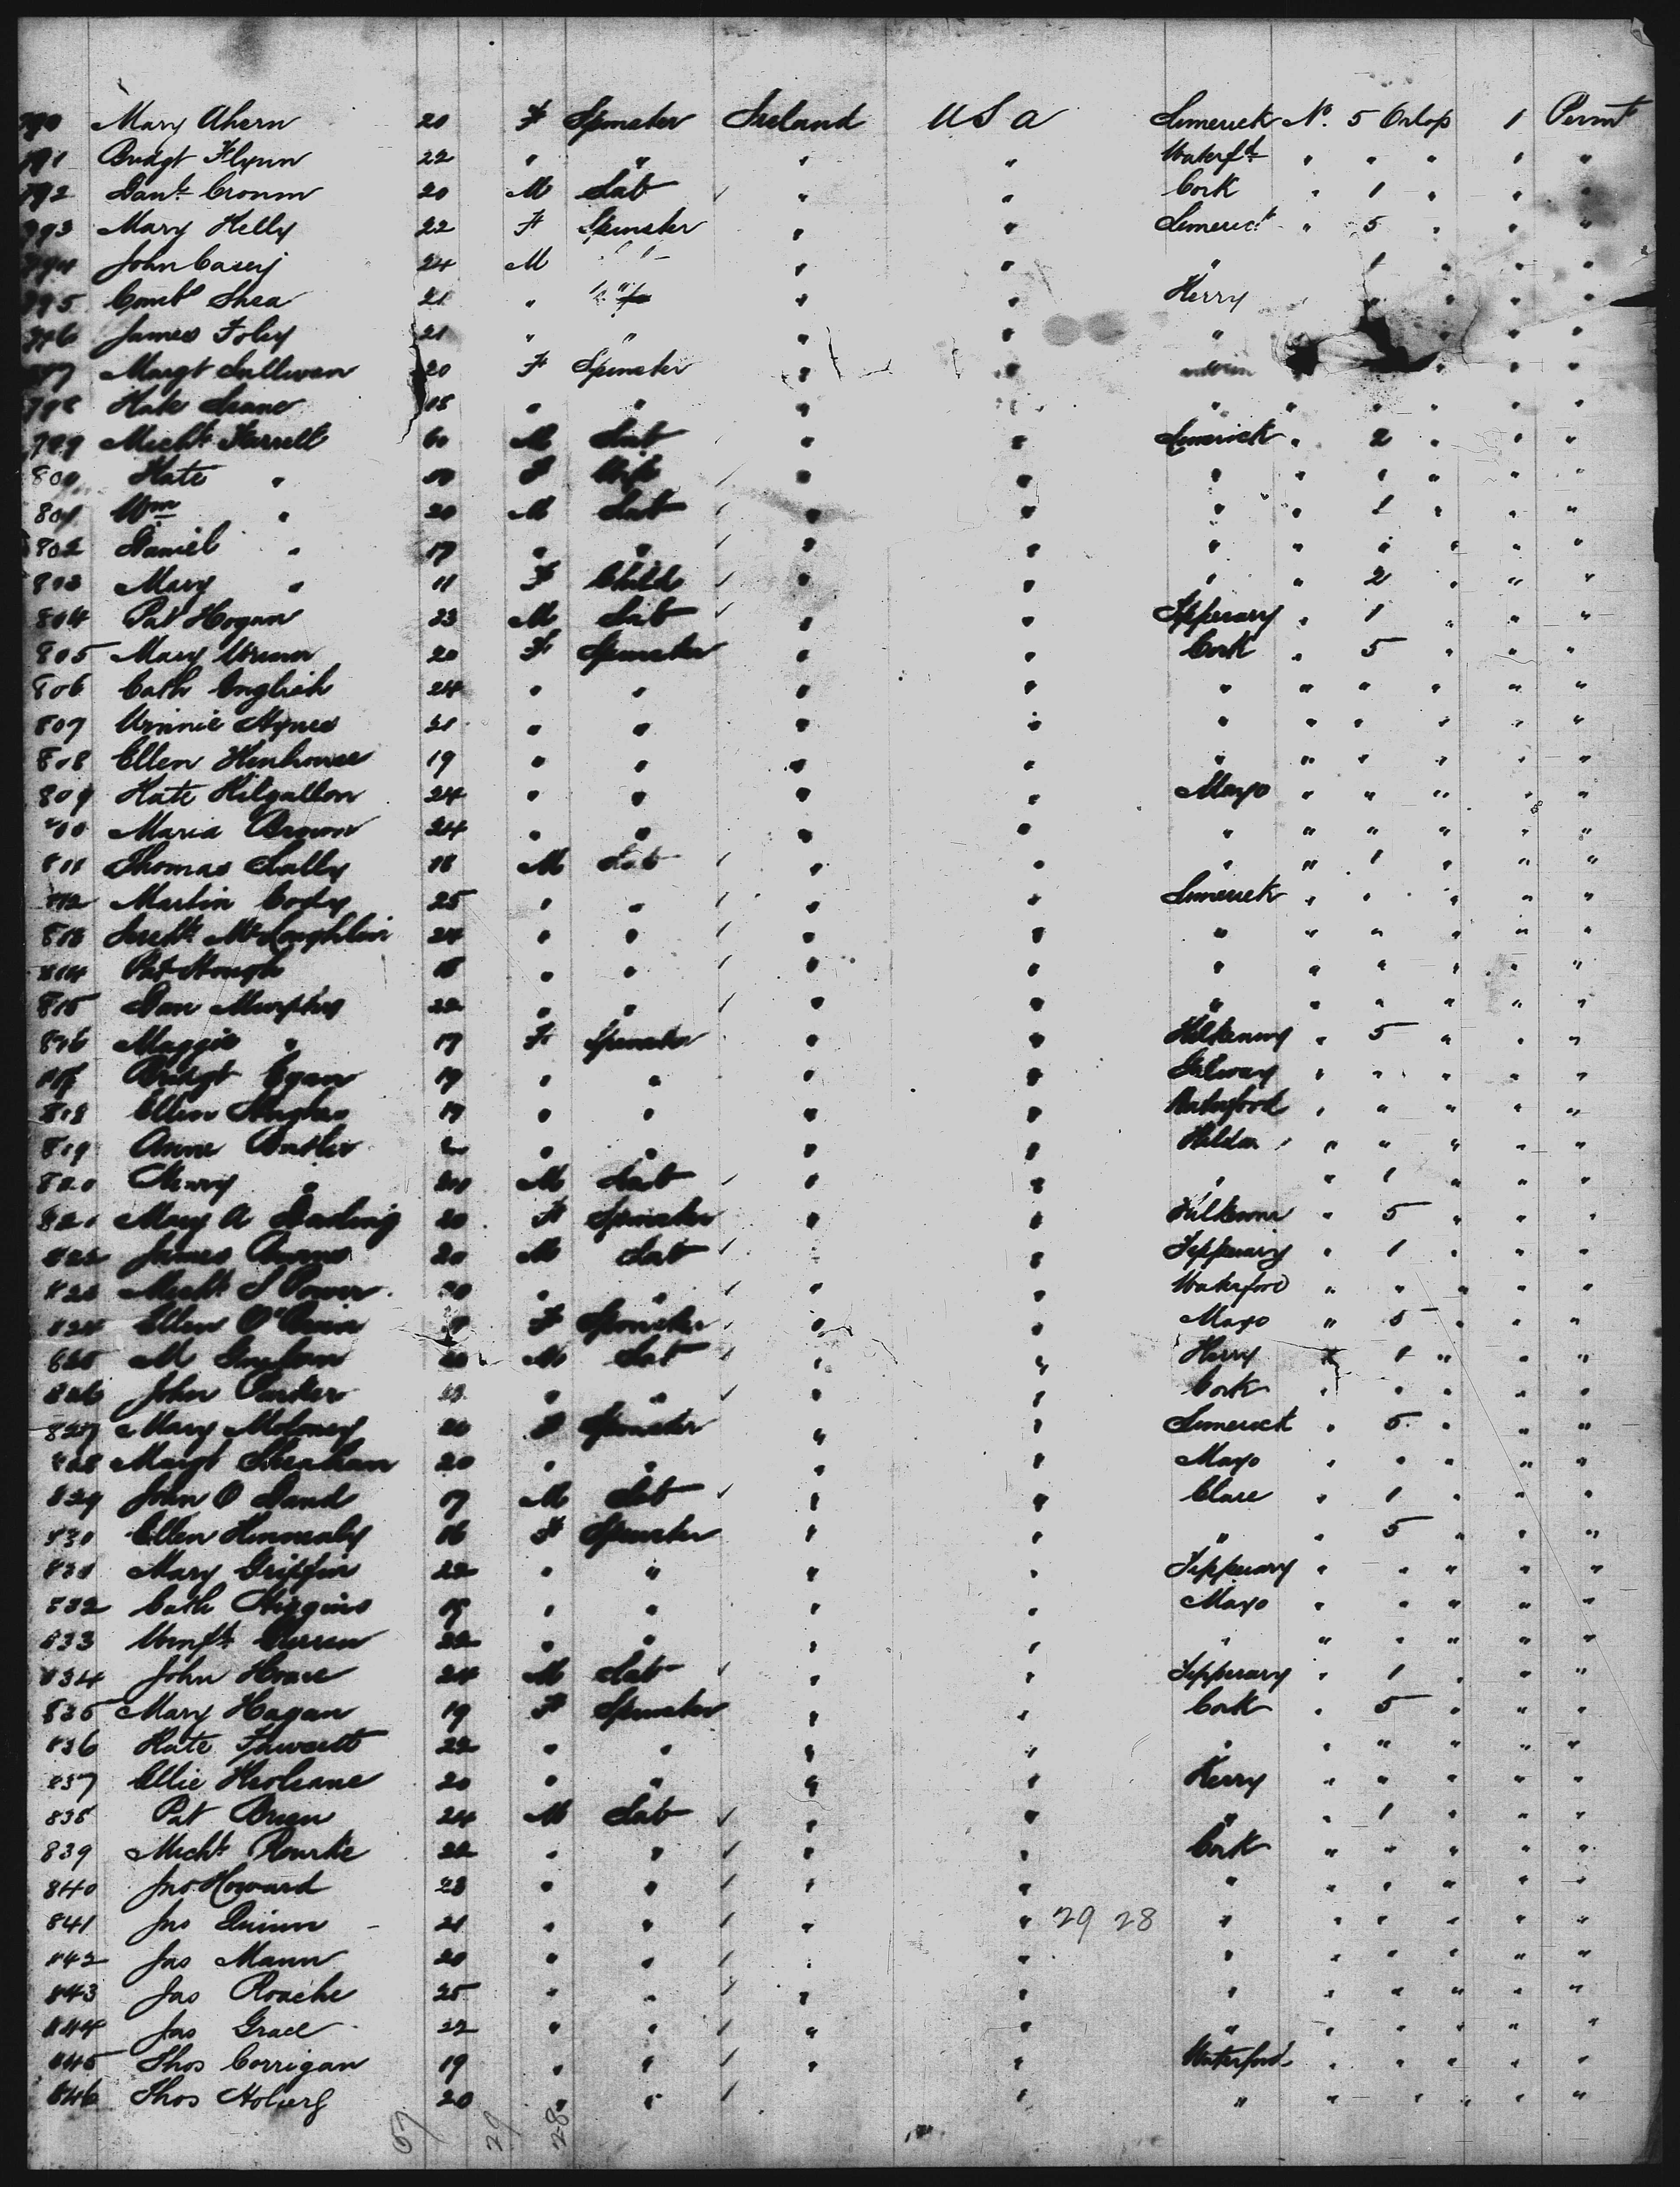 790 Mary Ahern 20 F Spinster Ireland U S a Limerick No. 5 Orlop 1 Permt
791 Bridgt Flynn 22 " " " " Waterfd " " " 1 "
792 Danl. Cronin 20 M Lab " " Cork " 1 " " "
793 Mary Kelly 22 F Spinster " " Limerick " 5 " " "
794 John Casey 24 M " " " 1 " " "
795 Shea 21 " " " Kerry " " " "
796 James Foley 21 " " " " " " " "
797 Margt Sullivan 20 F Spinster " " " " "
798 Kate 18 " " " " " " " " " "
799 Michl. Farrell 60 M Lab " " Limerick " 2 " " "
800 Kate " 50 F Wife " " " " " " " "
801 Wm " 20 M Lab " " " " 1 " " "
802 Daniel " 17 " " " " " " " " " "
803 Mary " 11 F Child " " " " 2 " " "
804 Pat Hogan 23 M Lab " " Tipperary " 1 " " "
805 Mary 20 F Spinster " " Cork " 5 " " "
806 Cath English 24 " " " " " " " " " "
807 Winnie Hynes 21 " " " " " " " " " "
808 Ellen 19 " " " " " " " " " "
809 Kate Kilgallon 24 " " " " Mayo " " " " "
800 Maria Brown 24 " " " " " " " " " "
811 Thomas Lally 18 M Lab " " " " 1 " " "
812 Martin Cody 25 " " " " Limerick " " " " "
813 McLoughlin 24 " " " " " " " " " "
814 Pat Hough 18 " " " " " " " " " "
815 Dan Murphy 22 " " " " " " " " " "
816 Maggie " 17 F Spinster " " Kilkenny " 5 " " "
817 Bridgt Egan 19 " " " " Galway " " " " "
818 Ellen Hughes 17 " " " " Waterford " " " " "
819 Anne Butler " " " " Kildare " " " " "
820 Henry " 20 M Lab " " " " 1 " " "
821 Mary A 20 F Spinster " " " 5 " " "
822 James 20 M Lab " " Tipperary " 1 " " "
823 Michl. Power 20 " " " " Waterford " " " " "
824 Ellen F Spinster " " Mayo " 5 " " "
825 M 20 M Lab " " Kerry 1 " " "
826 John " " " " Cork " " " " "
827 Mary Moloney 20 F Spinster " " Limerick " 5 " " "
828 Margt Sheahan 20 " " " " Mayo " " " " "
829 John O 17 M Lab " " Clare " 1 " " "
830 Ellen 16 F Spinster " " " " 5 " " "
831 Mary Griffin 22 " " " " Tipperary " " " " "
832 Cath Higgins 19 " " " " Mayo " " " " "
833 22 " " " " " " " " " "
834 John Hoare 24 M Lab " " Tipperary " 1 " " "
835 Mary Hagan 19 F Spinster " " Cork " 5 " " "
836 Kate 22 " " " " " " " " " "
837 Ellie 20 " " " " Kerry " " " " "
838 Pat Breen 24 M Lab " " " " 1 " " "
839 Michl. Rourke 22 " " " " Cork " " " " "
840 Jno Howard 23 " " " " " " " " " "
841 Jno Quinn 21 " " " " 29 28 " " " " " "
842 Jas Mann 20 " " " " " " " " " "
843 Jas Roache 25 " " " " " " " " " "
844 Jas Grace 22 " " " " " " " " " "
845 Thos Corrigan 19 " " " " Waterford " " " " "
846 Thos 20 " " " " " " " " "
57 29 28